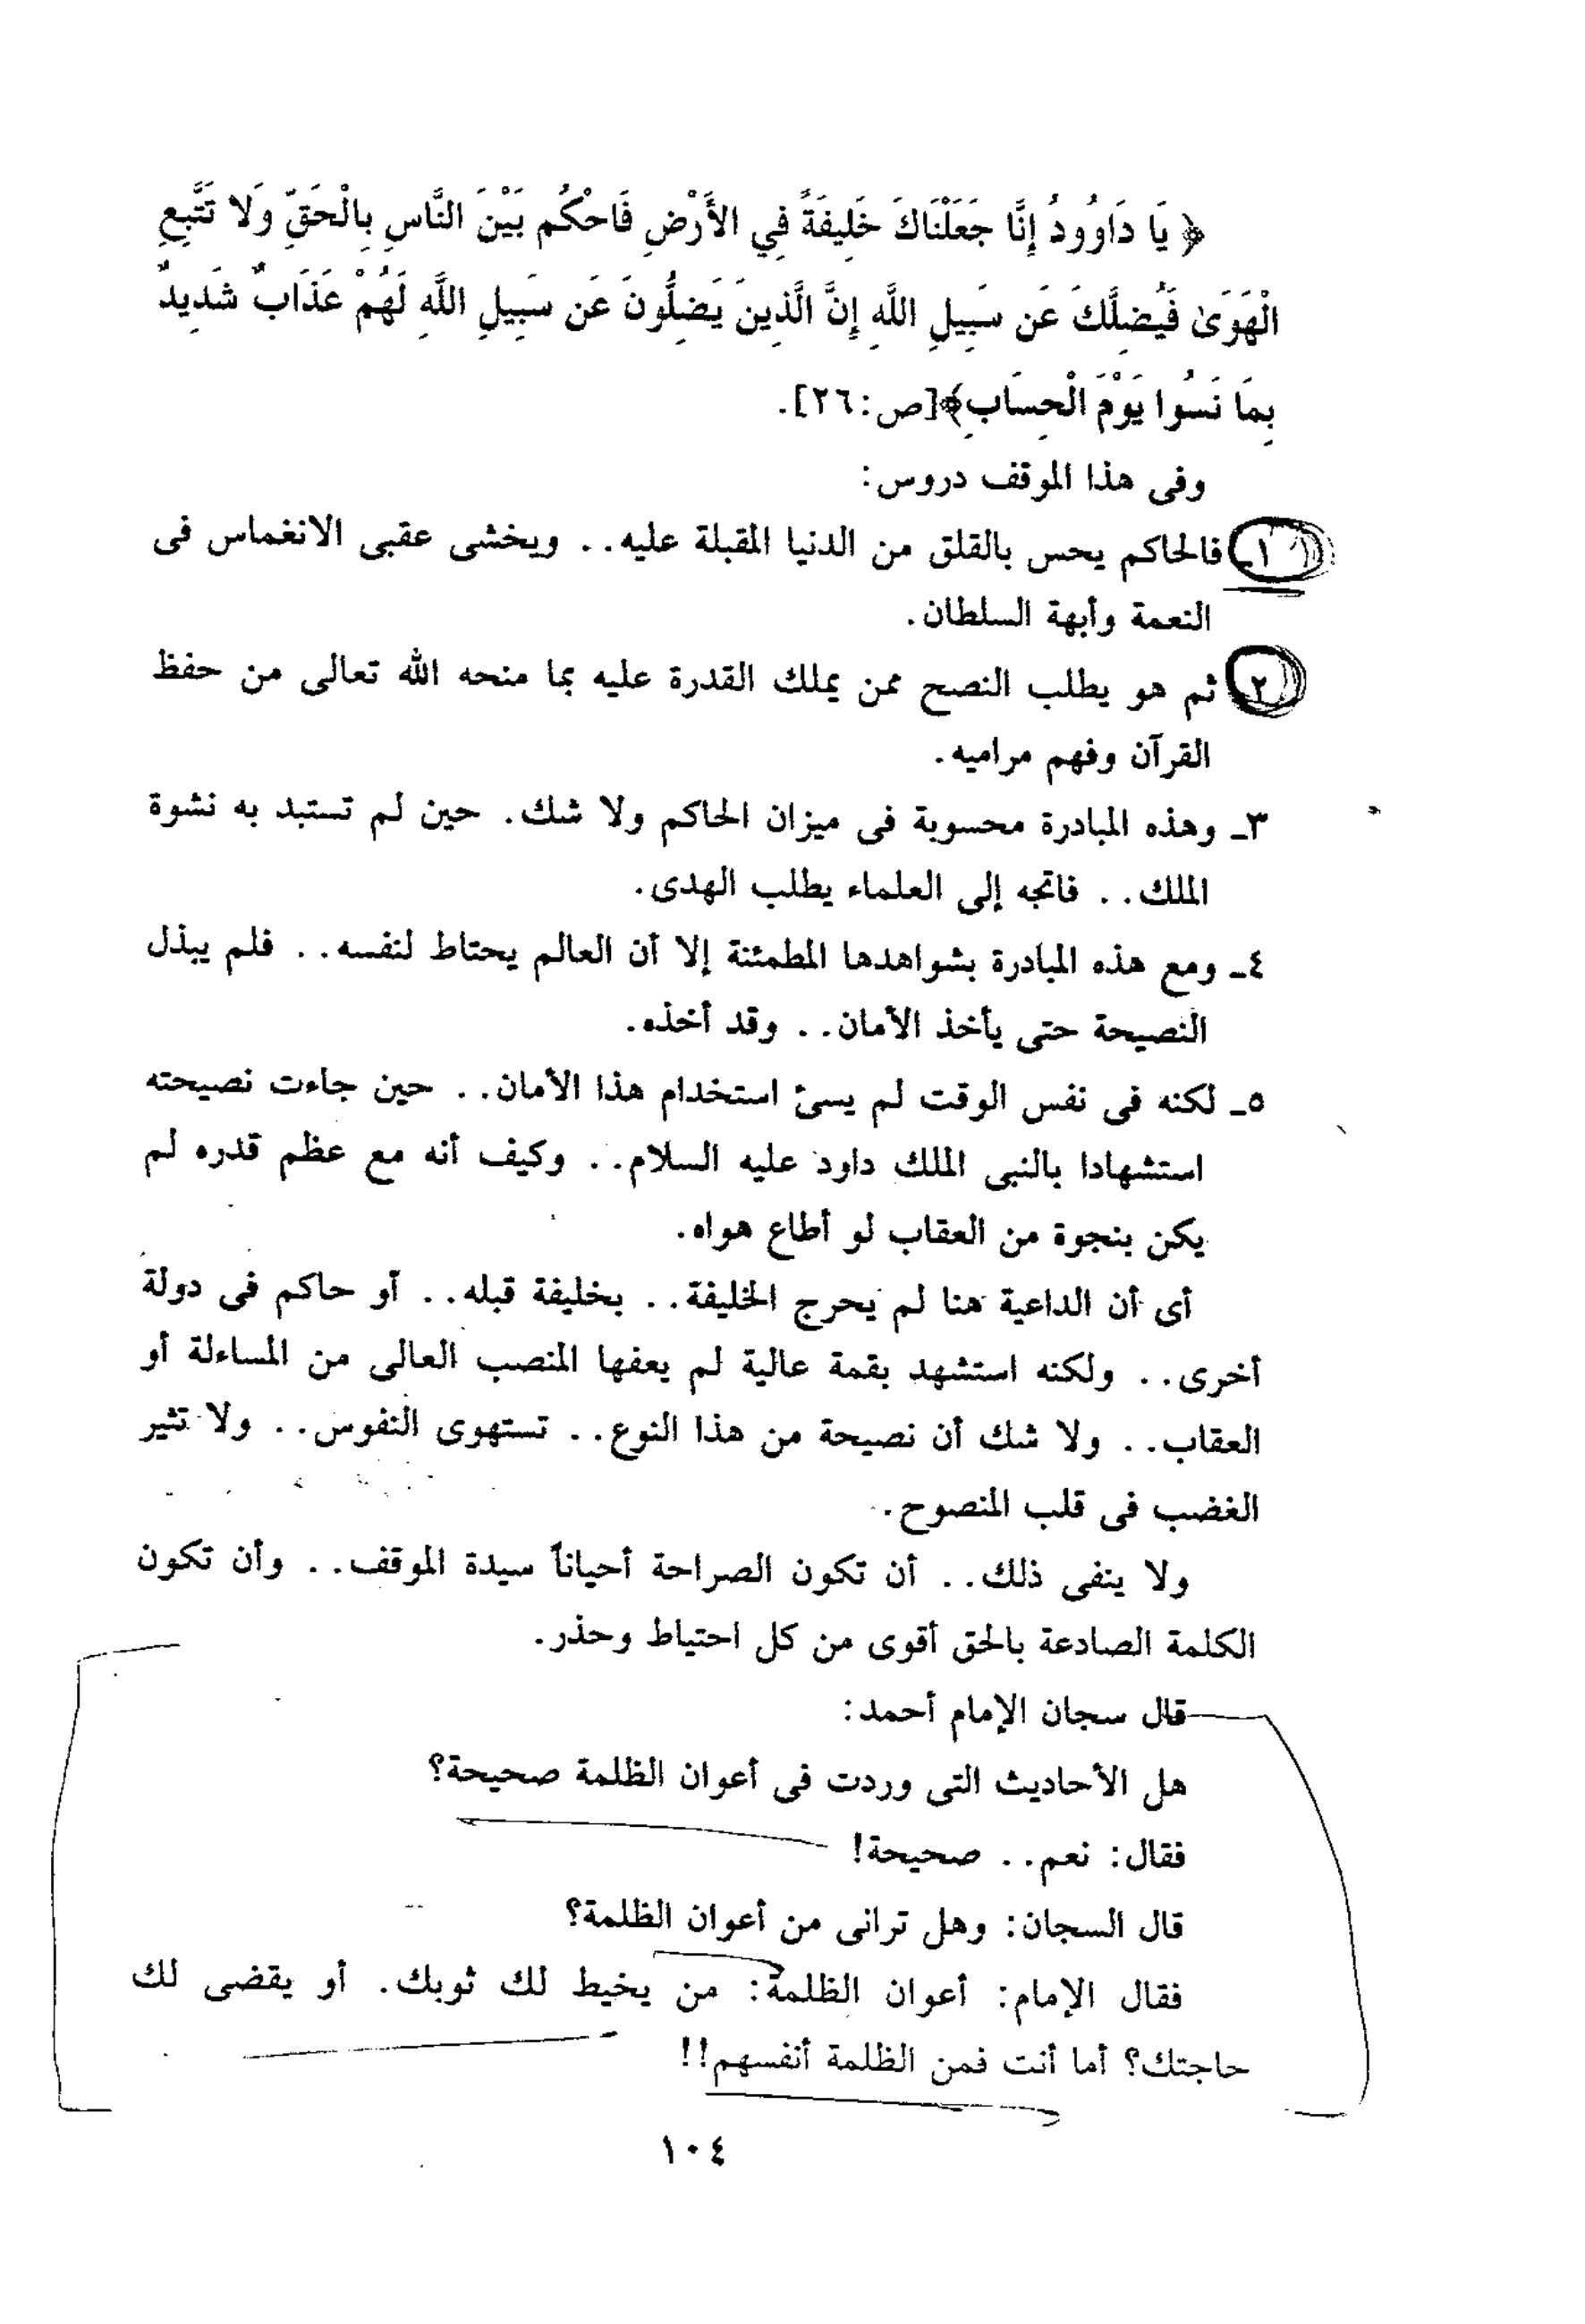 ﴿ يَا دَاوُودُ إِنَّا جَعَلْنَاكَ خَلِيفَةً فِي الأَرْضِ فَاحْكُم بَيْنَ النَّاسِ بِالْحَقِّ وَلا تَتَّبِعِ
الْهَوَىٰ فَيُضِلَّكَ عَن سَبِيلِ اللَّهِ إِنَّ الَّذِينَ يَضِلُّونَ عَن سَبِيلِ اللَّهِ لَهُمْ عَذَابٌ شَدِيدٌ
بِمَا نَسُوا يَوْمَ الْحِسَابِ﴾[ص:٢٦].
وفى هذا الموقف دروس:
١ـ فالحاكم يحس بالقلق من الدنيا المقبلة عليه.. ويخشى عقبى الانغماس فى
النعمة وأبهة السلطان.
٢ـ ثم هو يطلب النصح ممن يملك القدرة عليه بما منحه الله تعالى من حفظ
القرآن وفهم مراميه.
٣ـ وهذه المبادرة محسوبة فى ميزان الحاكم ولا شك. حين لم تستبد به نشوة
الملك.. فاتجه إلى العلماء يطلب الهدى.
٤ـ ومع هذه المبادرة بشواهدها المطمئنة إلا أن العالم يحتاط لنفسه.. فلم يبذل
النصيحة حتى يأخذ الأمان.. وقد أخذه.
٥ـ لكنه فى نفس الوقت لم يسئ استخدام هذا الأمان.. حين جاءت نصيحته
استشهادا بالنبى الملك داود عليه السلام.. وكيف أنه مع عظم قدره لم
يكن بنجوة من العقاب لو أطاع هواه.
أى أن الداعية هنا لم يحرج الخليفة.. بخليفة قبله.. أو حاكم فى دولة
أخرى.. ولكنه استشهد بقمة عالية لم يعفها المنصب العالى من المساءلة أو
العقاب.. ولا شك أن نصيحة من هذا النوع.. تستهوى النفوس.. ولا تثير
الغضب فى قلب المنصوح.
ولا ينفى ذلك.. أن تكون الصراحة أحياناً سيدة الموقف.. وأن تكون
الكلمة الصادعة بالحق أقوى من كل احتياط وحذر.
قال سجان الإمام أحمد:
هل الأحاديث التى وردت فى أعوان الظلمة صحيحة؟
فقال: نعم.. صحيحة!
قال السجان: وهل ترانى من أعوان الظلمة؟
فقال الإمام: أعوان الظلمة: من يخيط لك ثوبك. أو يقضى لك
حاجتك؟ أما أنت فمن الظلمة أنفسهم!!
١٠٤